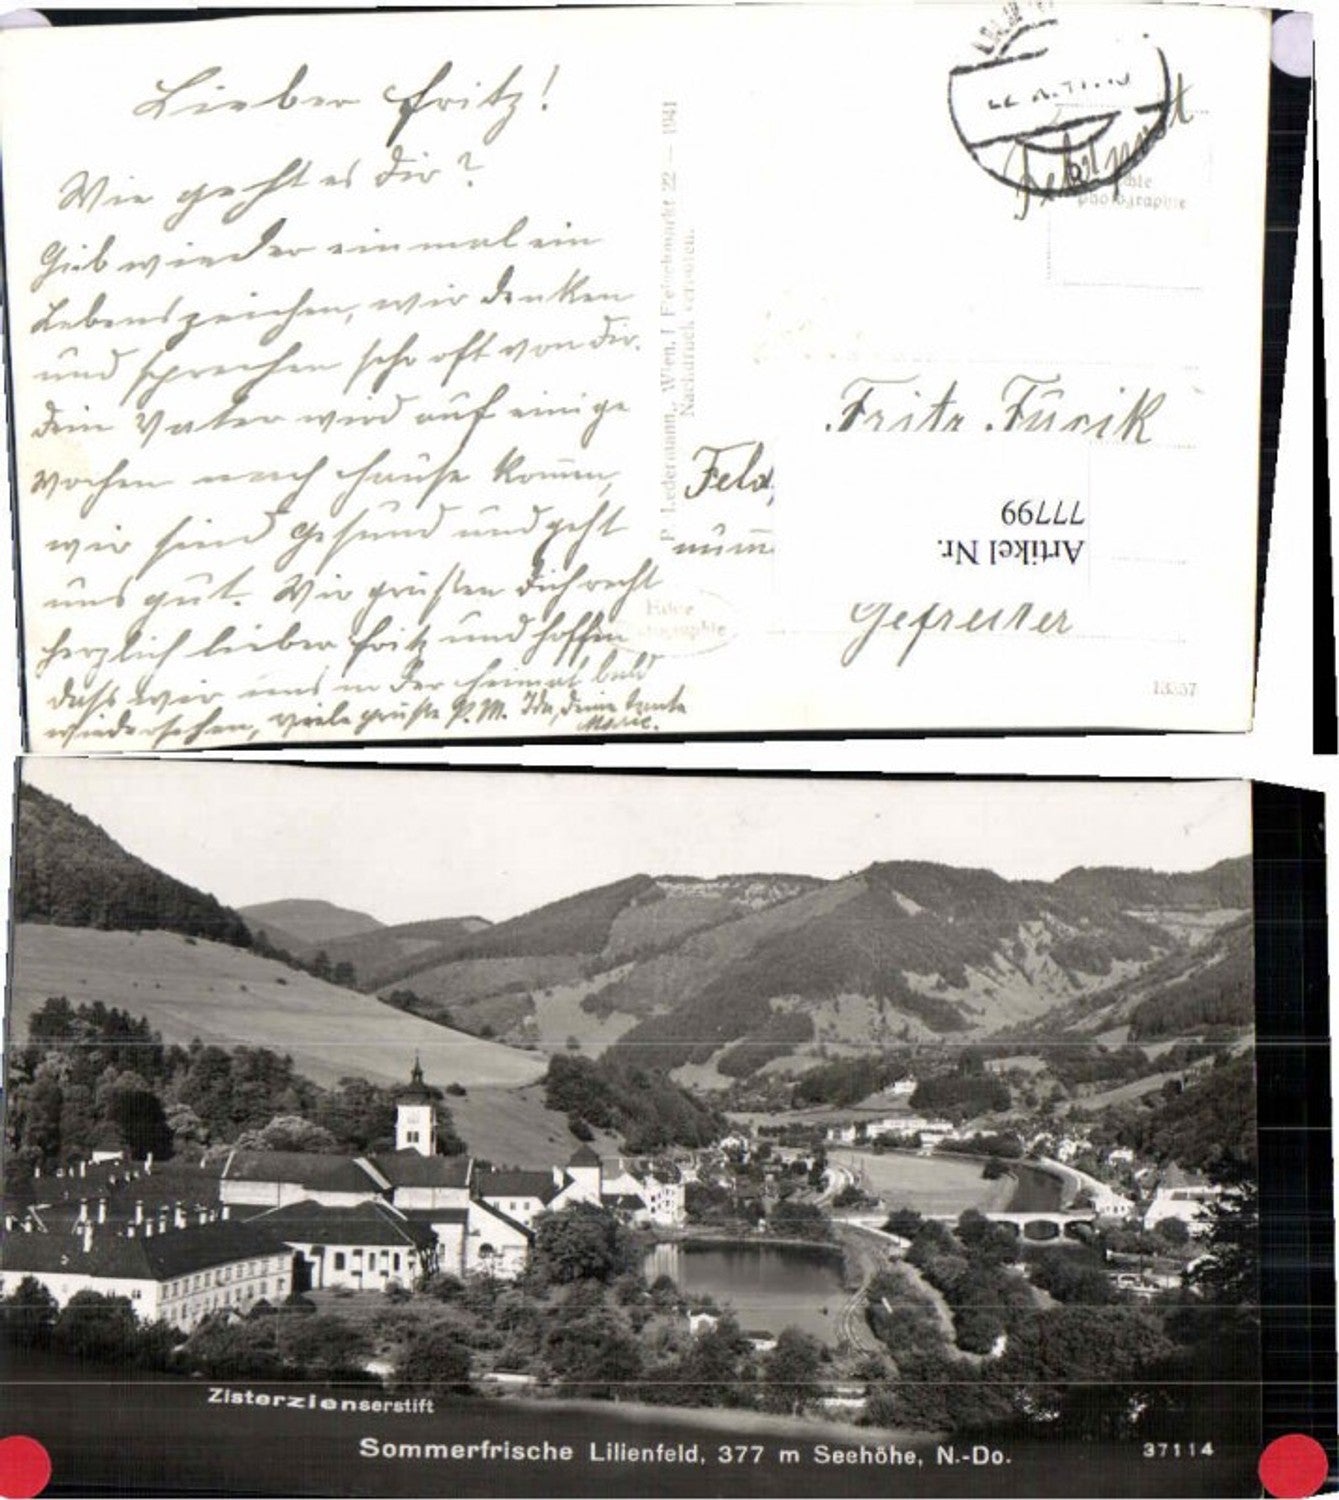 Lieber Fritz!
Wie geht es dir?
Gib wieder einmal ein
Lebenszeichen, wir denken
und sprechen sehr oft von dir.
Dein Vater wird auf einige
Wochen nach Hause komen,
wir sind gesund und geht
uns gut. Wir grüßen dich recht
herzlich lieber Fritz und hoffen
dass wir uns in der Heimat bald
wiedersehen, viele grüße P. M. Ida, deine Tante
Marie.
P. Ledermann, Wien, I Fleischmarkt 22 — 1941
Nachdruck verboten.
Echte
Photographie
Feldpost
Echte
photographie
Fritz Fürik
Feld
num
Artikel Nr.
77799
Gefreiter
13357
Zisterzienserstift
Sommerfrische Lilienfeld, 377 m Seehöhe, N.-Do.
37114